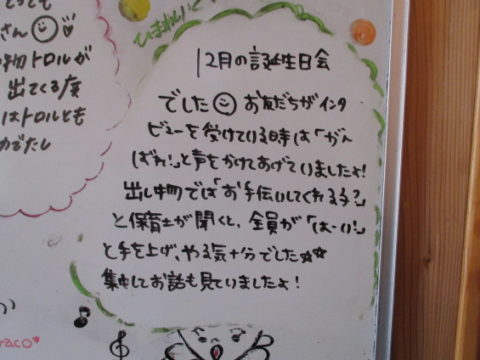 とっても
さん
物トロルが
出てくる度
はトロルとも
ひまわり
12月の誕生日会
でした☺お友だちがインタ
ビューを受けている時は「がん
ばれ!」と声をかけてあげていましたよ!
出し物では「お手伝いしてくれる子?」
と保育士が聞くと、全員が「はーい!」
と手を上げ、やる気十分でした☆☆
集中してお話も見ていましたよ!
か
raco